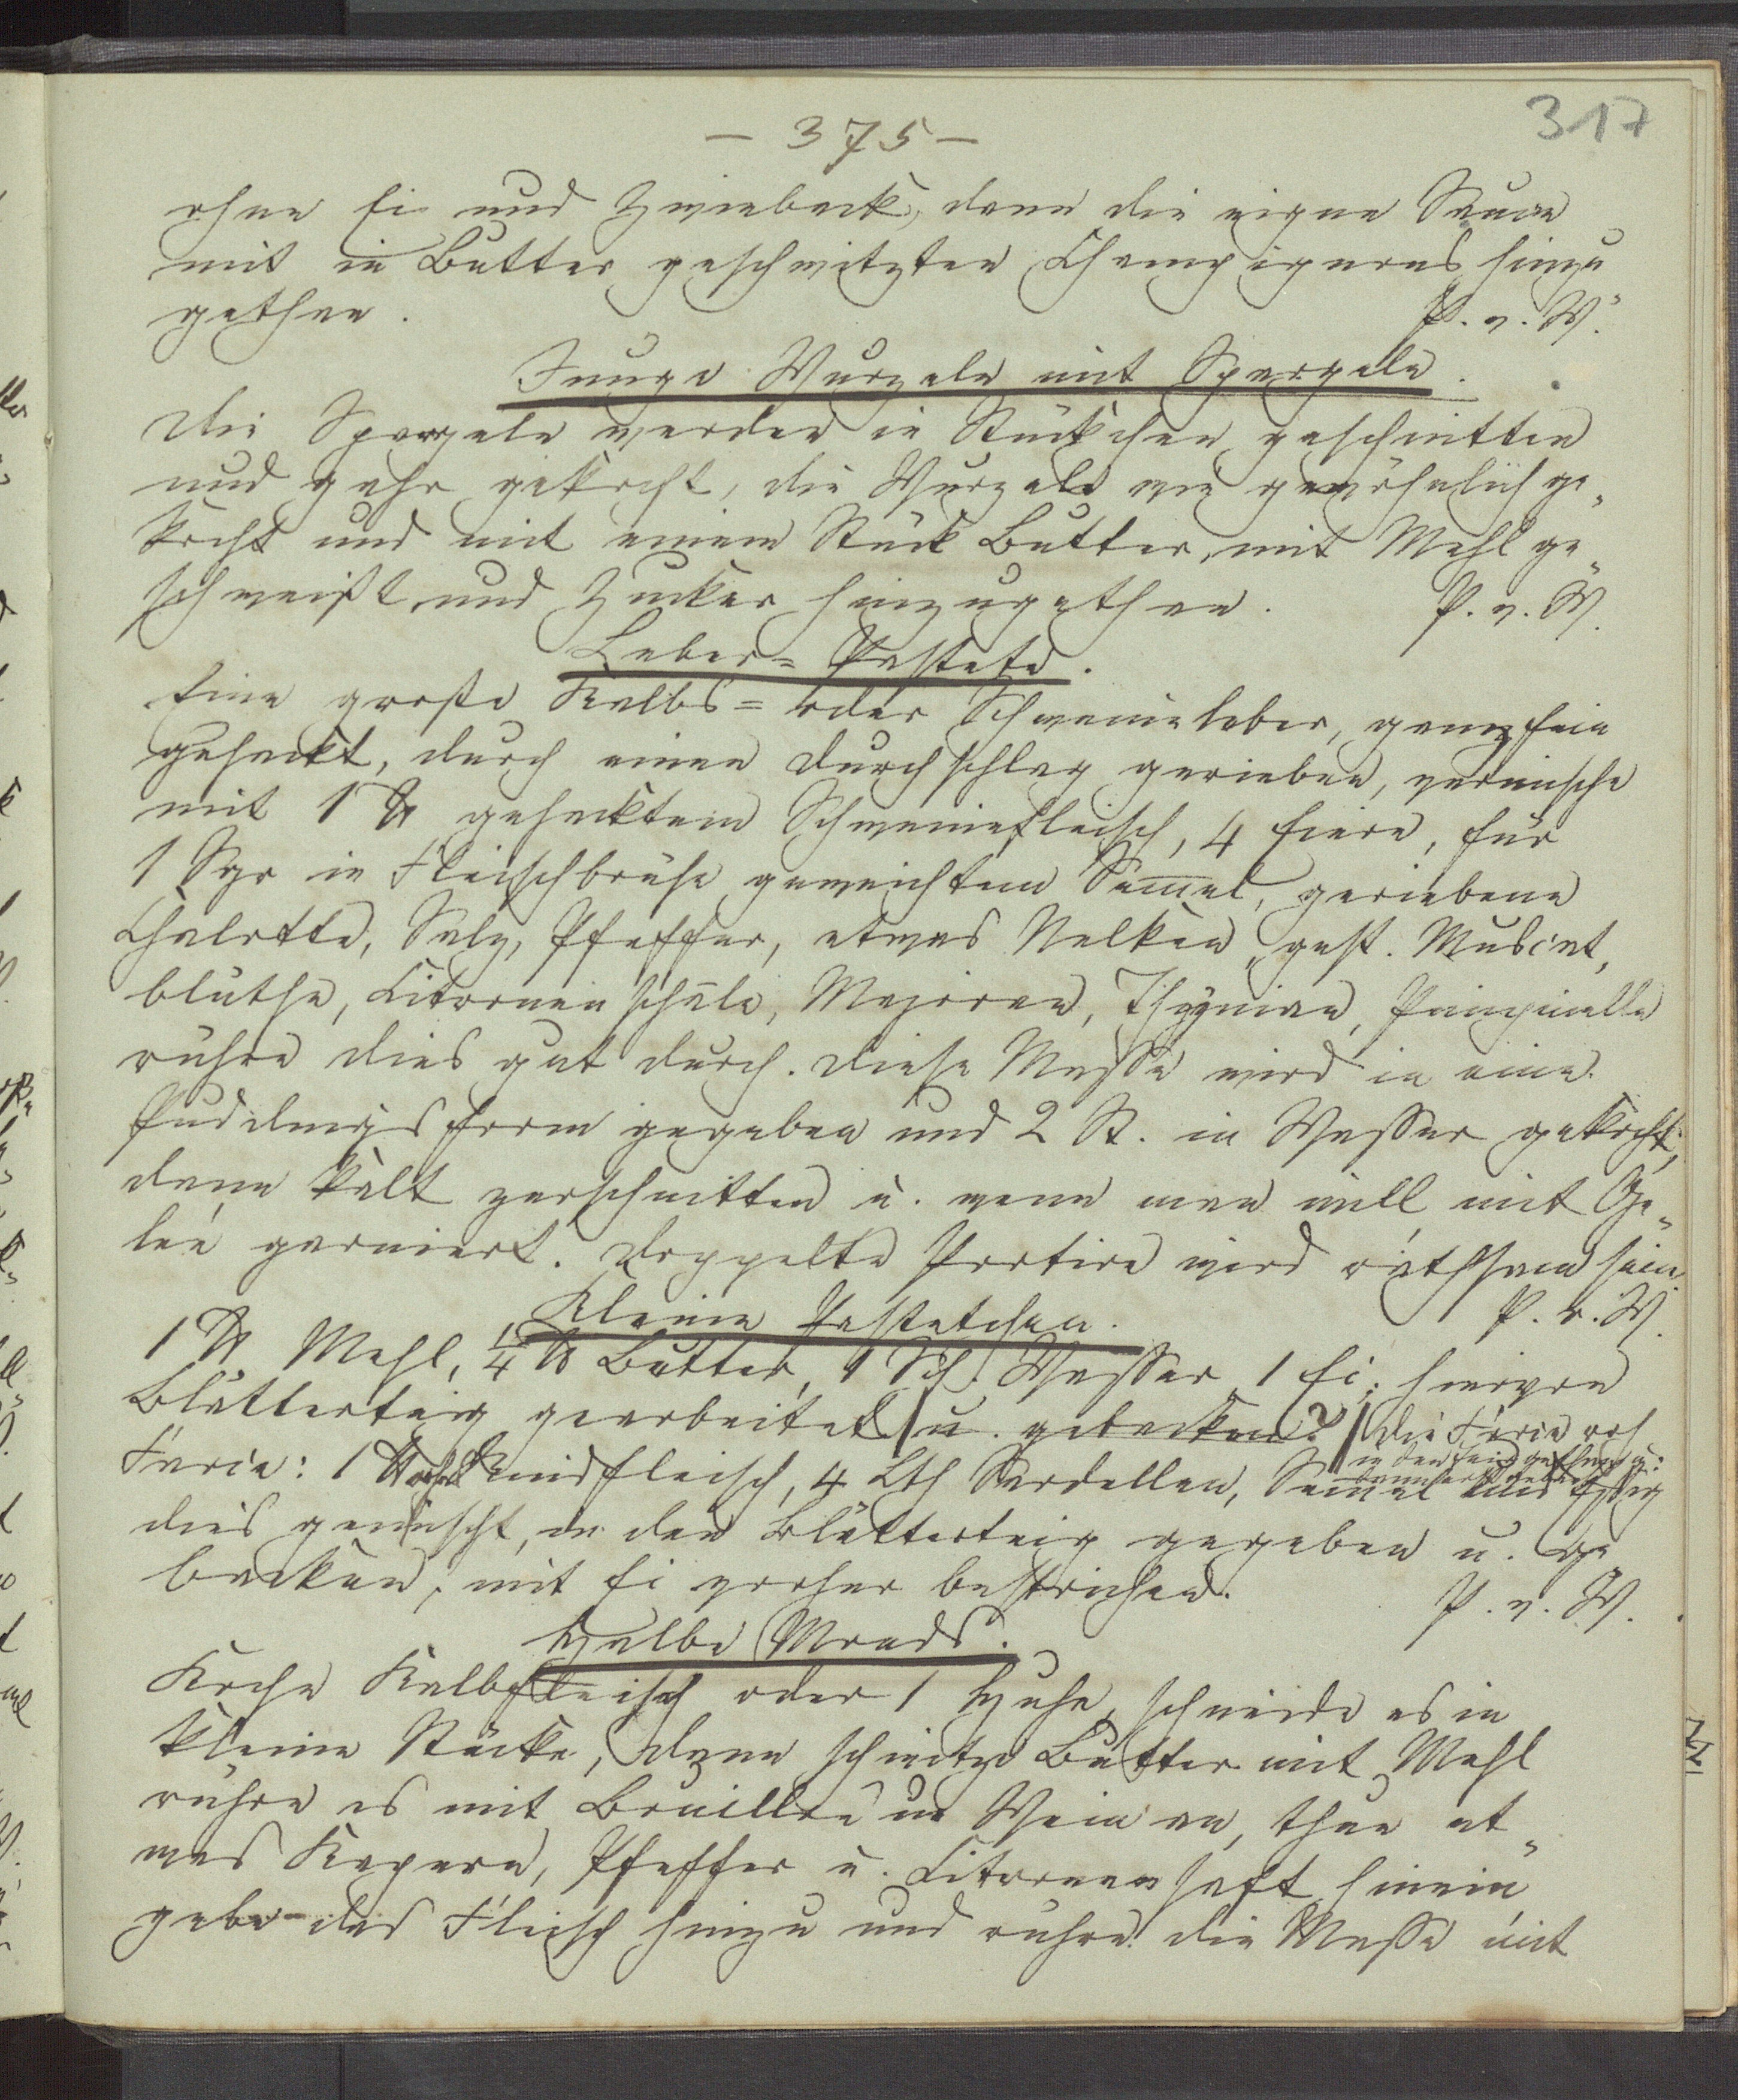 317
— 375 —
ohne Ei und Zwieback, dann die eigne Sauce
mit in Butter geschwitzten Champignons hinzu
gethan.
P. v. W.
Junge Wurzeln mit Spargeln.
Die Spargeln werden in Stückchen geschnitten
und gahr gekocht, die Wurzeln wie gewöhnlich ge„
kocht und mit einem Stück Butter, mit Mehl ge„
schweißt und Zucker hinzugethan. P. v. W.
Leber= Pastete.
Eine große Kalbs= oder Schweineleber, ganz fein
gehackt, durch einen Durchschlag gerieben, vermische
mit 1 ℔ gehacktem Schweinefleisch, 4 Eiern, für
1 Sgr in Fleischbrühe geweichtem Semel, geriebene
Chalotte, Salz, Pfeffer, etwas Nelken, gest. Muscat„
blüthe, Citronenschale, Majoran, Thymian, Pimpinelle
rühre dies gut durch. Diese Masse wird in eine
Puddingsform gegeben und 2 St. in Wasser gekocht,
dann kalt zerschnitten u. wenn man will mit Ge„
lée garniert. Doppelte Portion wird rathsam sein.
P. v. W.
Kleine Pastetchen.
1 ℔ Mehl, 1/4 ℔ Butter, 1 Sch. Wasser, 1 Ei; hiervon
Blätterteig gearbeitet u. gebacken? die Farce roh
in den Teig gethan u:
Farce: 1 ℔ Rindfleisch, 4 Lth Sardellen, Semel und Essig
dies gemischt, in den Blätterteig gegeben u. ge„
backen, mit Ei vorher bestrichen.
P. v. W.
Halbe Monds.
Koche Kalbfleisch oder 1 Huhn, schneide es in
kleine Stücke, dann schwitze Butter mit Mehl
rühre es mit Bouillon u Wein an, thue et„
was Kapern, Pfeffer u. Citronensaft hinein,
gebe das Fleisch hinzu und rühre die Masse mit